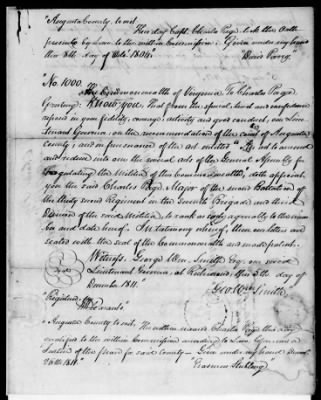 "Augusta County to wit
This day Capt. Charles Page took the Oath
prescribed by Law to the within Commission. Given under my hand
this 8th day of Oct. 1804."
"No. 1000.
The Commonwealth of Virginia To Charles Page
Greeting: Know you, that from the special trust and confidence
reposed in your fidelity, courage, activity and good conduct, our Lieu-
tenant Governor, on the recommendation of the court of Augusta
County, and in pursuance of the act entitled "An act to amend
and reduce into one the several acts of the General Assembly for
regulating the Militia of this Commonwealth," doth appoint
you the said Charles Page, Major of the second Battalion of
the thirty second Regiment in the Seventh Brigade and third
Division of the said Militia, to rank as such agreeably to the num-
ber and date hereof. In testimony whereof, these our letters are
sealed with the seal of the Commonwealth and made patent.
Witness, George Wm. Smith Esq. our said
Lieutenant Governor, at Richmond, this 5th day of
December 1811."
Geo Wm Smith
"Registered
"Augusta County to wit. The within named Charles Page this day
qualified to the within Commission according to Law before me a
Justice of the peace for said county - Given under my hand
26th 1811."